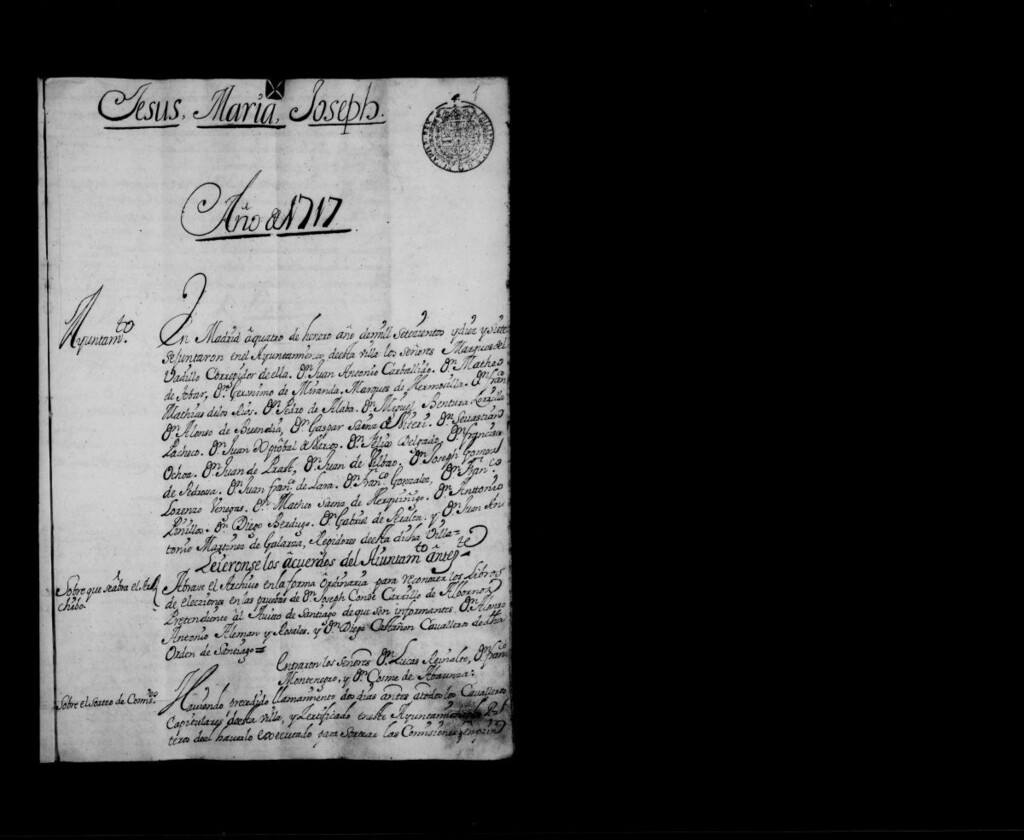 1
Jesus, Maria, Joseph.
Año de 1717
Ayuntam.to
En Madrid a quatro de henero año de mill setecientos y diez y siete
se juntaron en el Ayuntamiento desta villa los señores Marques del
Vadillo Correxidor de ella. Dn. Juan Antonio Carballido. Dn. Matheo
de tobar, Dn. Geronimo de Miranda. Marques de Hermosilla. Dn. Fran
Mathias de los Rios. Dn. Pedro de Alaba. Dn. Miguel Bentura
Dn. Alonso de Buendia, Dn. Gaspar Saenz de Sebastian
Pacheco. Dn. Juan Xptobal de Dn. Felix Delgado, Dn. Francisco
Ochoa. Dn. Juan de Prast, Dn. Juan de Bilbao, Dn. Joseph Gomez
de Pedrosa. Dn. Juan Fran.co de Lara. Dn. Fran.co Gonzalez, Dn. Fran.co
Lorenzo Venegas. Dn. Matheo Saenz de Dn. Anttonio
Pinillos. Dn. Diego Berdugo. Dn. Gabriel de Peralta. y Dn. Juan An
tonio Martinez de Galarza, Rexidores desta dicha Villa=
Leieronse los acuerdos del Aiuntam.to antez.te
Sobre que se abra el Ar
chibo.
Abrase el Archivo en la forma Ordinaria para reconozer los Libros
de elecziones en las pruebas de Dn. Joseph Conde Carrillo de Albornoz
Pretendiente al Auito de Santiago de que son informantes Dn. Alonso
Antonio Aleman y Rosales. y Dn. Diego Castañon Cavalleros de dha
Orden de Santiago=
Entraron los señores Dn. Lucas Reinalte, Dn. Fran.co
Montenegro, y Dn. Cosme de Abaunza:
Sobre el sorteo de Comis.es
Haviendo precedido llamamiento dos dias antes a todos los Cavalleros
Capitulares desta villa, y Zertificado en este Ayuntamiento los Por
teros de el haverlo executado para sortear las Comisiones